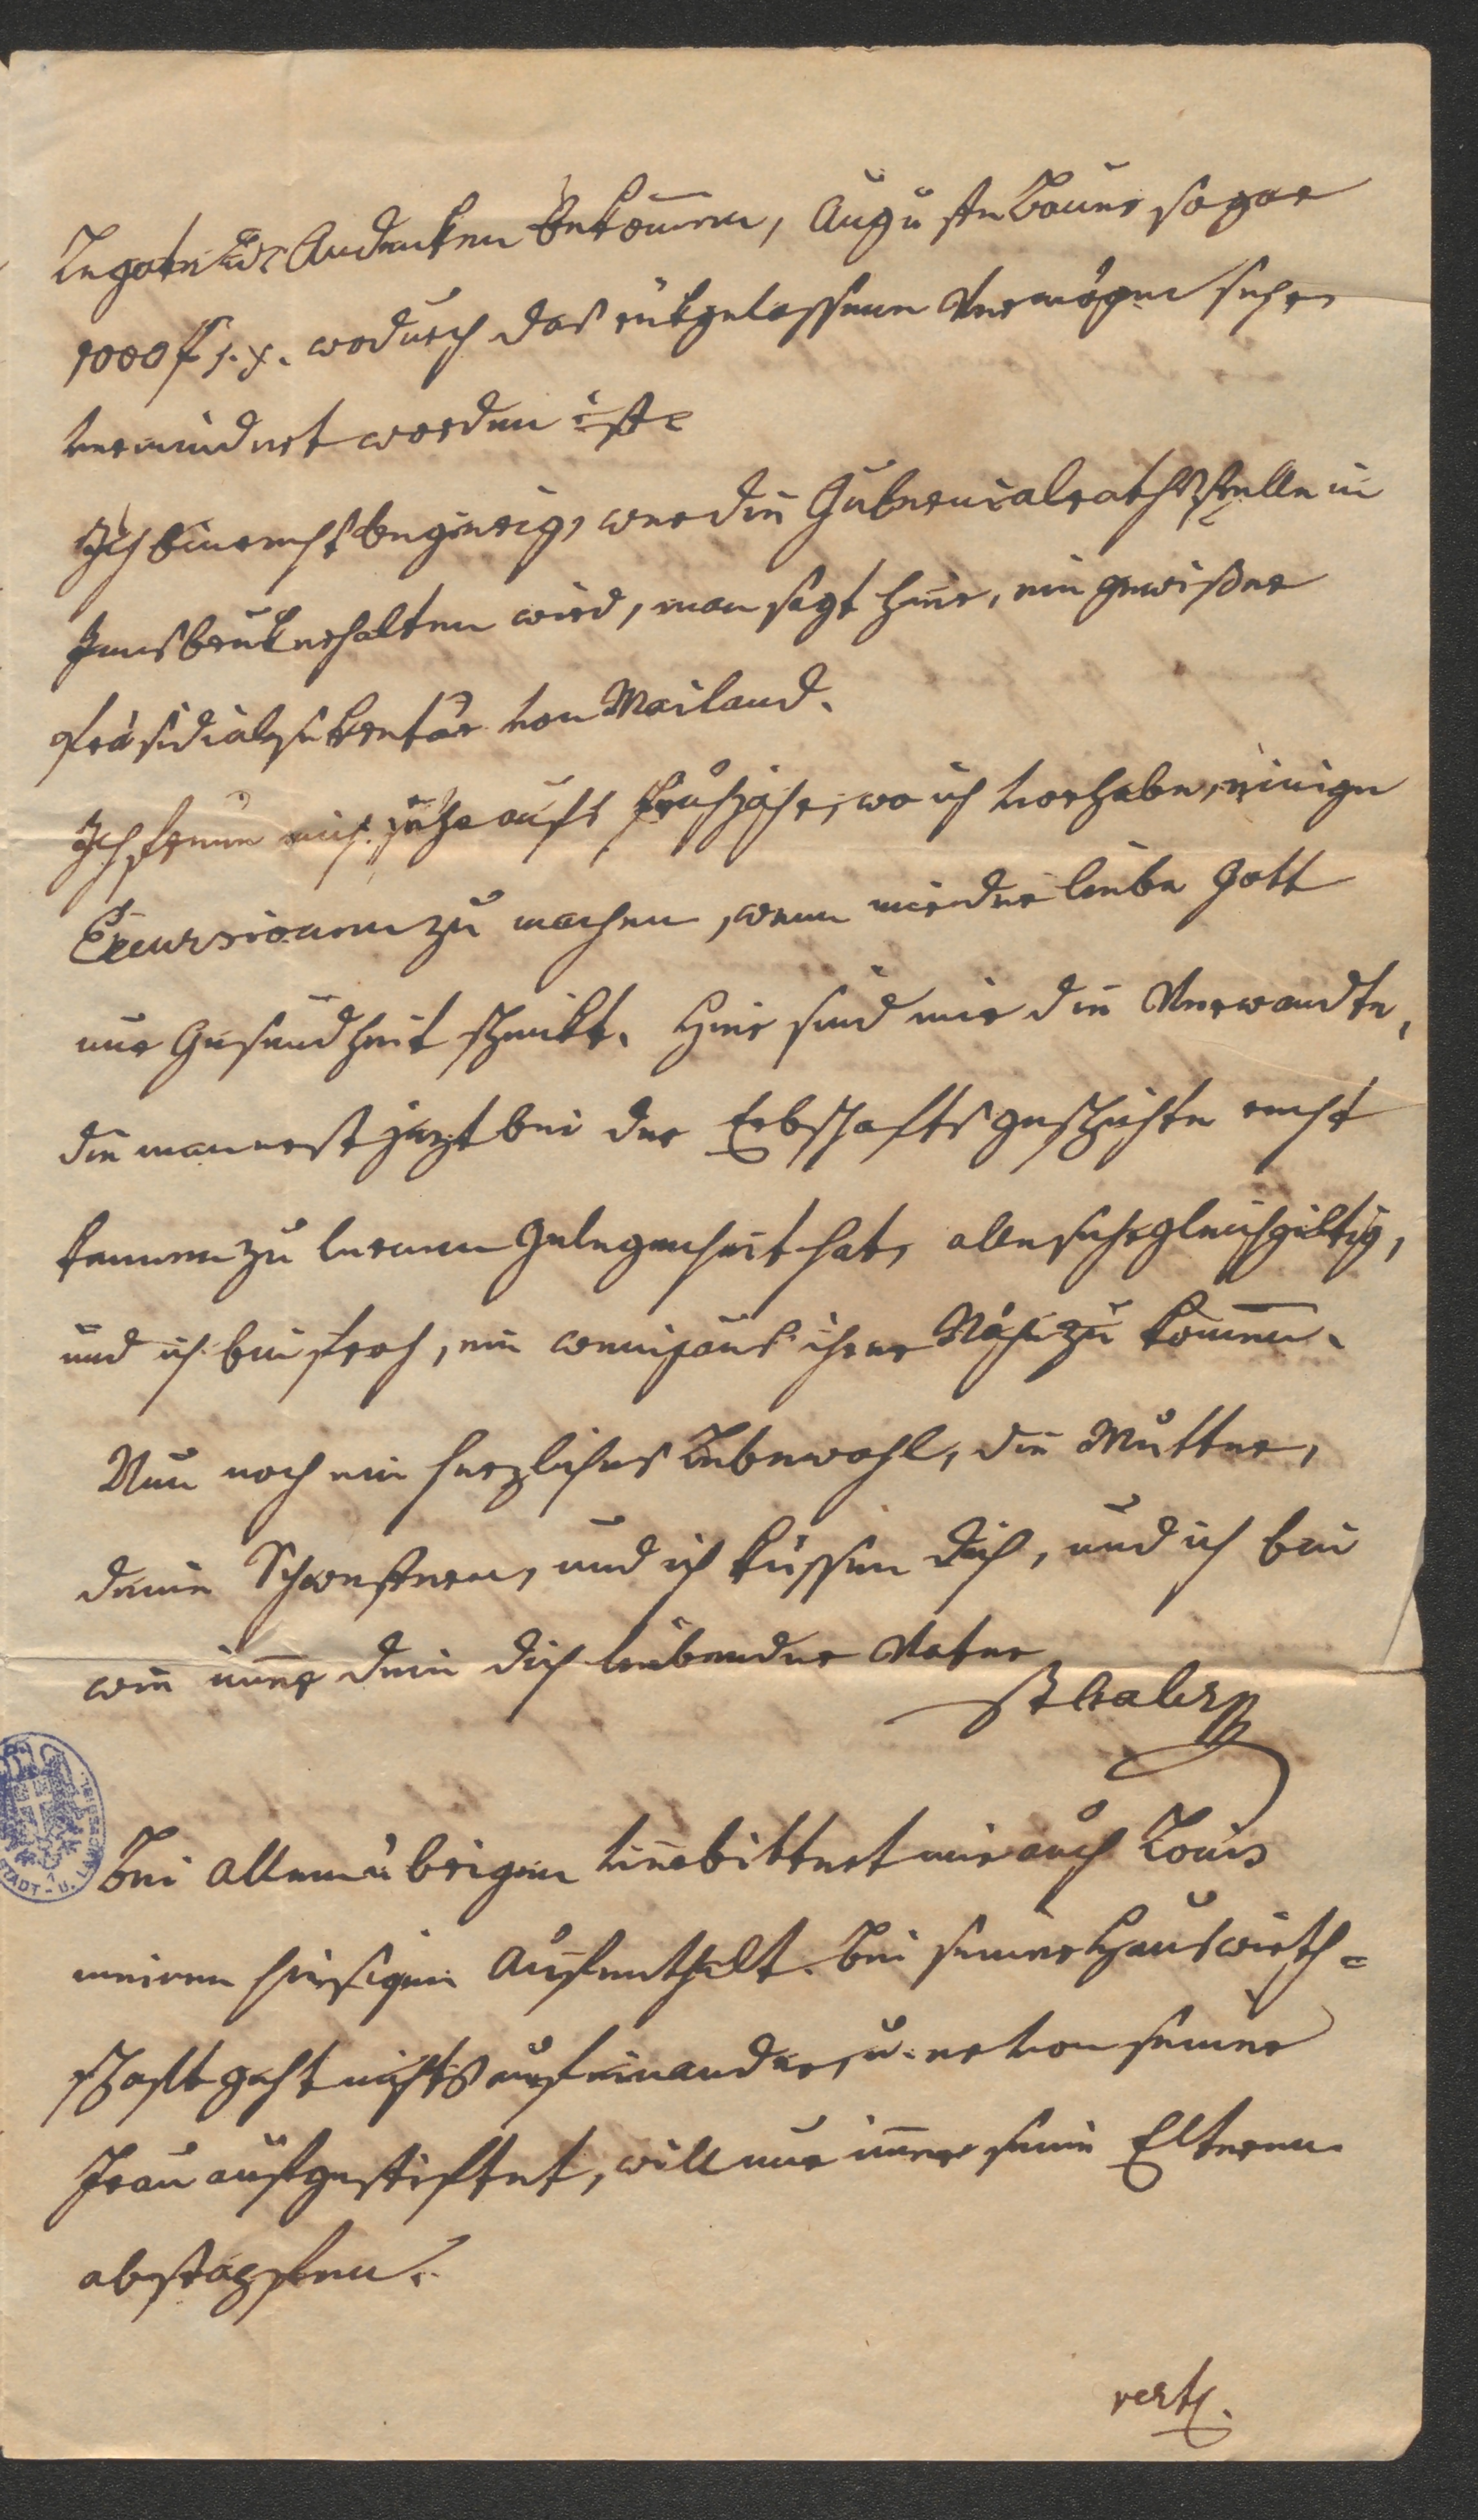 Legate u. Andenken bekom̅en, Auguste Bauer sogar
1000 f wodurch das rükgelassene Vermögen sehr
vermindert worden ist.
Ich bin recht begierig, wer die Gubernialrathsstelle in
Innsbruk erhalten wird, man sagt hier, ein gewißer
Präsidialsekretär von Mailand.
Ich freue mich sehr aufs Frühjahr, wo ich vorhabe, einige
Excursionen zu machen, wenn mir der liebe Gott
nur Gesundheit schenkt. Hier sind mir die Verwandte,
die man erst jezt bei der Erbschaftsgeschichte recht
kennen zu lernen Gelegenheit hat, alle sehr gleichgiltig,
und ich bin froh, ein wenig aus ihrer Nähe zu kom̅en.
Nun noch ein herzliches Lebewohl, die Mutter,
deine Schwestern, und ich küssen dich, und ich bin
wie im̅er dein dich liebender Vater
Bei allem übrigen verbittert mir auch Louis
meinen hiesigen Aufenthalt. Bei seiner Hauswirth=
schaft geht nichts auseinander, u. er von seiner
Frau aufgestiftet, will nur im̅er seine Elteren
abstrapfen.
vert.